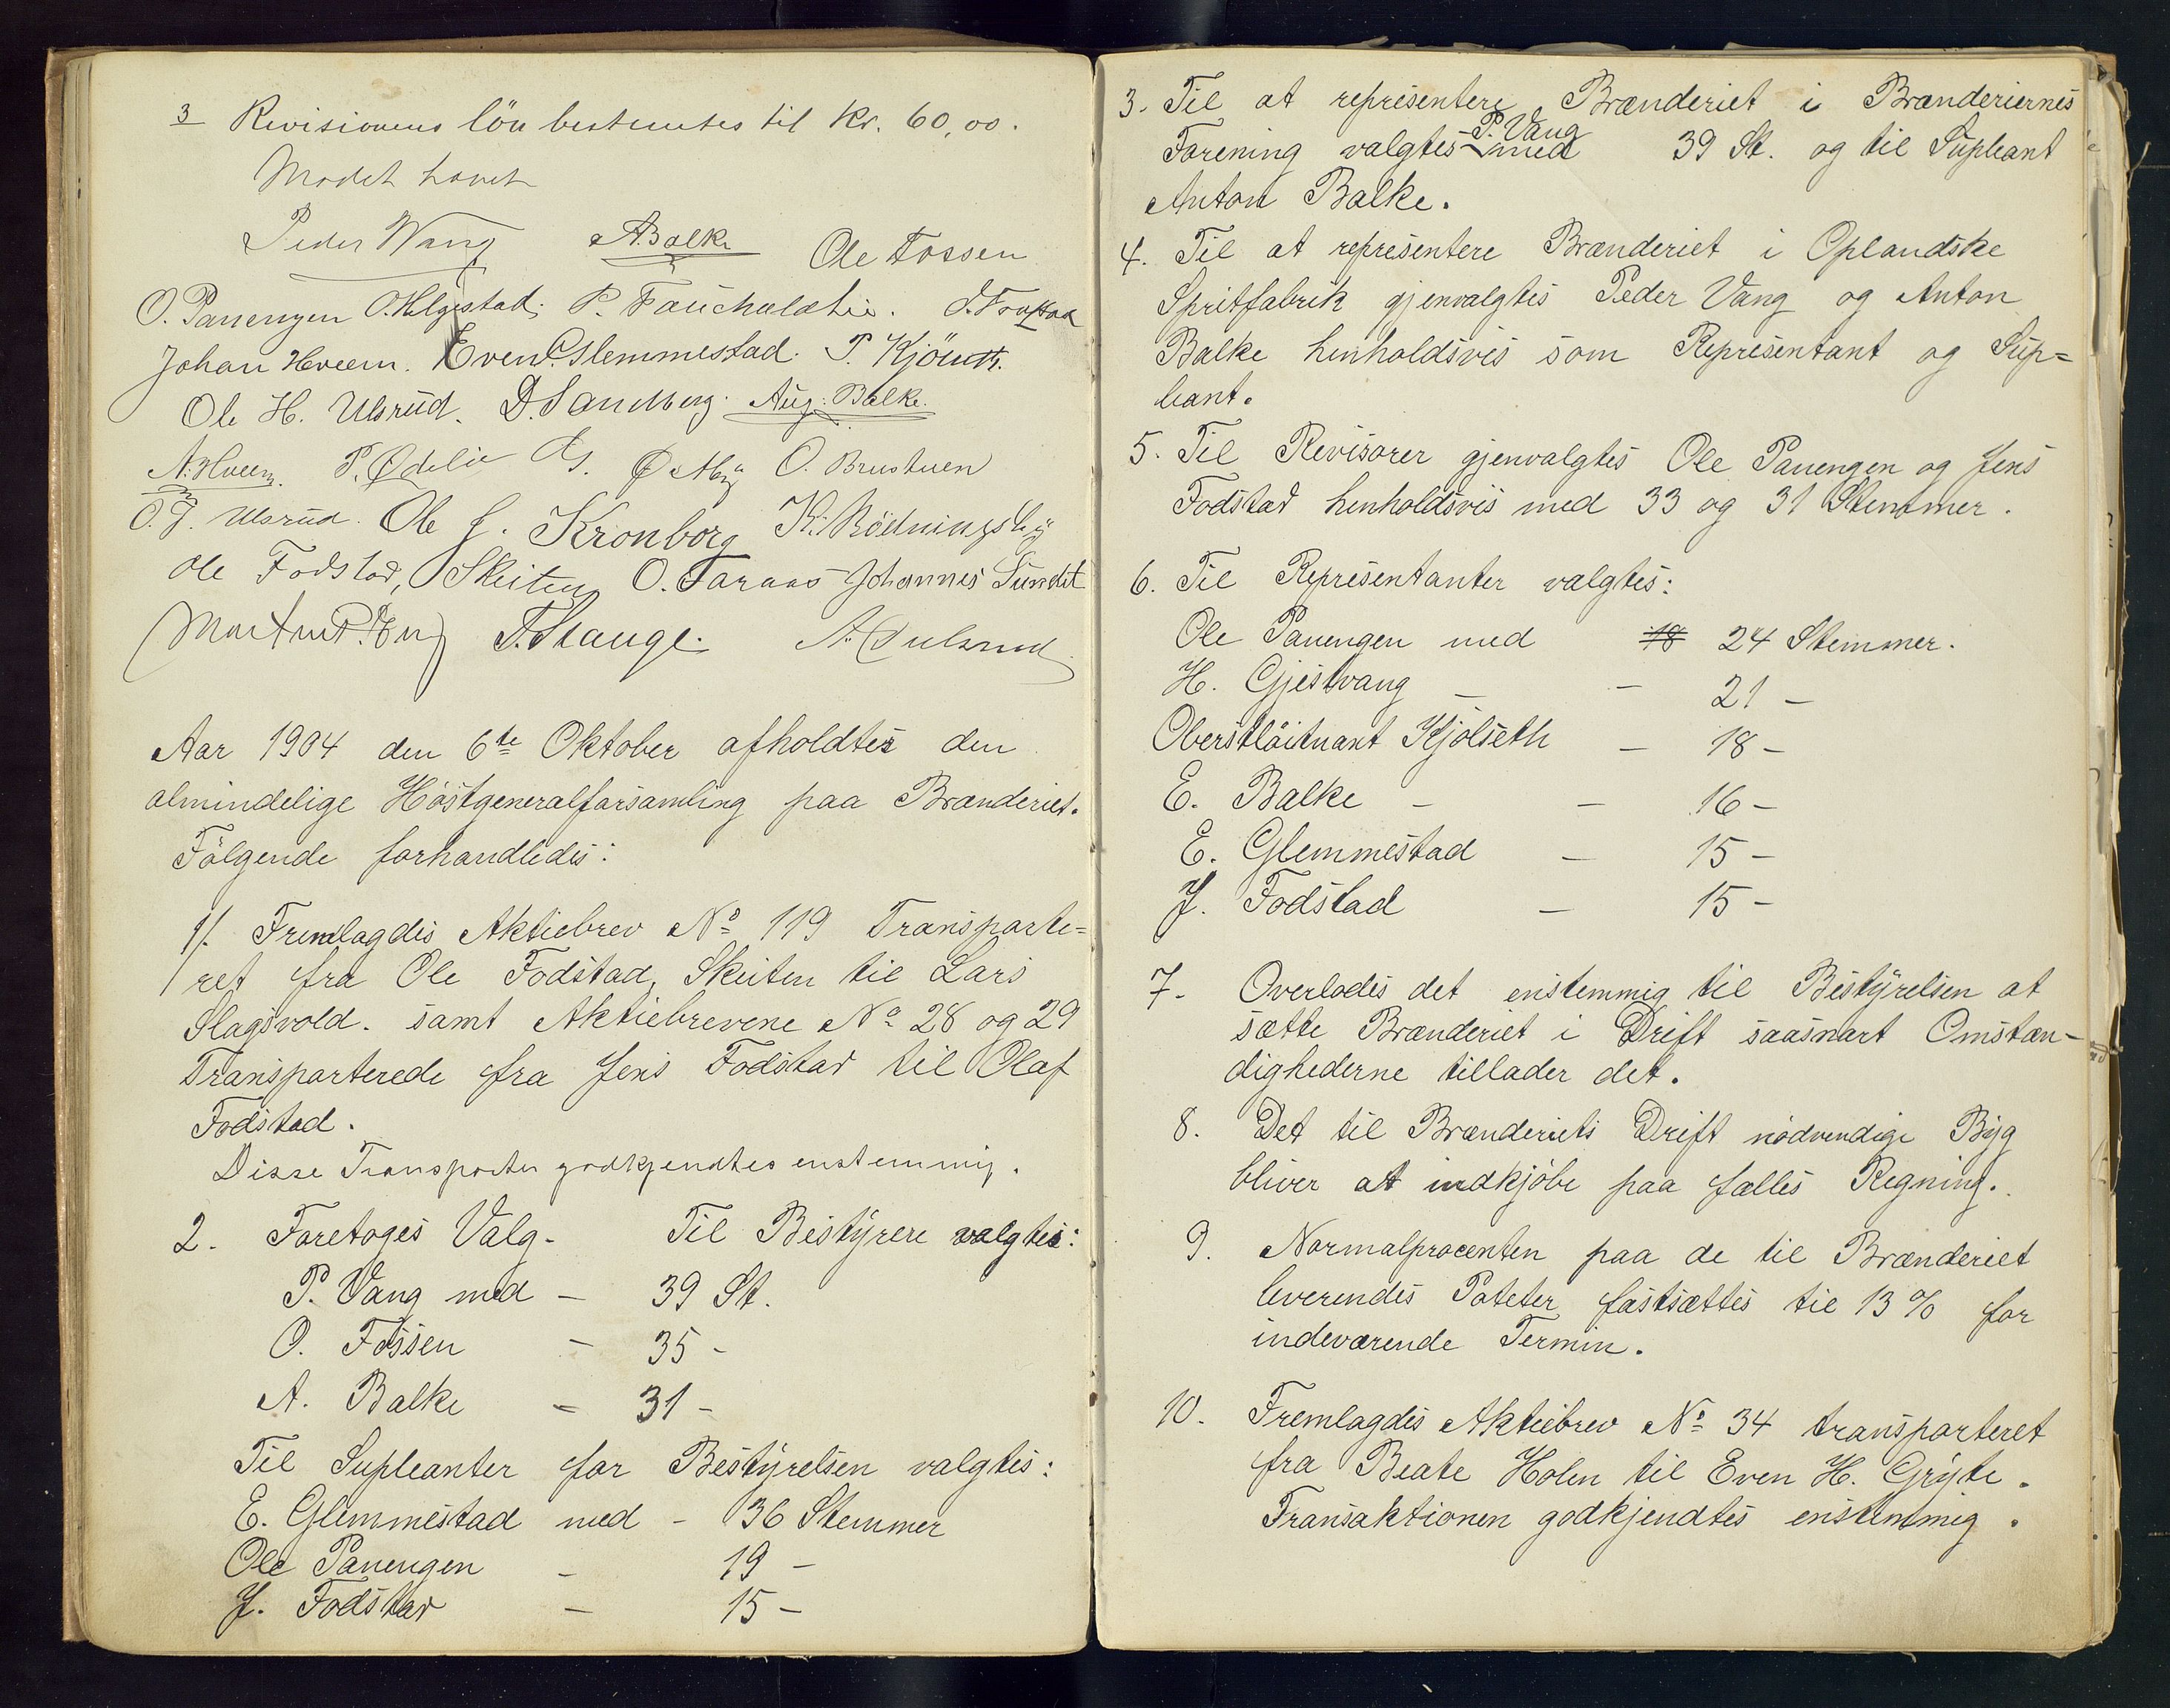 3 Revisionens lön bestemtes til kr. 60,00.
Mødet hævet
Peder Wang ABalke Ole Fossen
O. Panengen O. Helgestad. P. Fauchaldlie.
Johan Hveem. Even Glemmestad.
Ole H. Ulsrud. D. Sandberg. Aug. Balke.
A. Hveem. P. Ødelie O. Brustuen
O. J. Ulsrud. Ole J. Kronborg K. Rödningsby
Ole Fodstad, Skeiten O. Faraas Johannes Sundet
T. Stauge.
Aar 1904 den 6te Oktober afholdtes den
almindelige Høstgeneralforsamling paa Brænderiet.
Følgende forhandledes:
1/. Fremlagdes Aktiebrev No 119 Transporte=
ret fra Ole Fodstad, Skeiten til Lars
Slagsvold. samt Aktiebrevene No 28 og 29
Transporterede fra Jens Fodstad til Olaf
Fodstad.
Disse Transporter godkjendtes enstemmig.
2. Foretoges Valg. Til Bestyrere valgtes:
P. Vang med - 39 St.
O. Fossen - 35 -
A. Balke - 31 -
Til Supleanter for Bestyrelsen valgtes:
E. Glemmestad med - 36 Stemmer
Ole Panengen - 19 -
J. Fodstad - 15 -
3. Til at representere Brænderiet i Brænderiernes
Forening valgtes P. Vang med 39 St. og til Supleant
Anton Balke.
4. Til at representere Brænderiet i Oplandske
Spritfabrik gjenvalgtes Peder Vang og Anton
Balke henholdsvis som Representant og Sup=
leant.
5. Til Revisorer gjenvalgtes Ole Panengen og Jens
Fodstad henholdsvis med 33 og 31 Stemmer.
6. Til Representanter valgtes:
Ole Panengen med 18 24 Stemmer.
H. Gjestvang - - 21 -
Oberstløitnant Kjølseth - 18 -
E. Balke - - 16 -
E. Glemmestad - 15 -
J. Fodstad - 15 -
7. Overlodes det enstemmig til Bestyrelsen at
sætte Brænderiet i Drift saasnart Omstæn-
dighederne tillader det.
8. Det til Brænderiets Drift nødvendige Byg
bliver at indkjøbe paa fælles Regning.
9. Normalprocenten paa de til Brænderiet
leverendes Poteter fastsættes til 13 % for
indeværende Termin.
10. Fremlagdes Aktiebrev No 34 transporteret
fra Beate Holen til Even H. Gryte.
Transaktionen godkjendtes enstemmig.